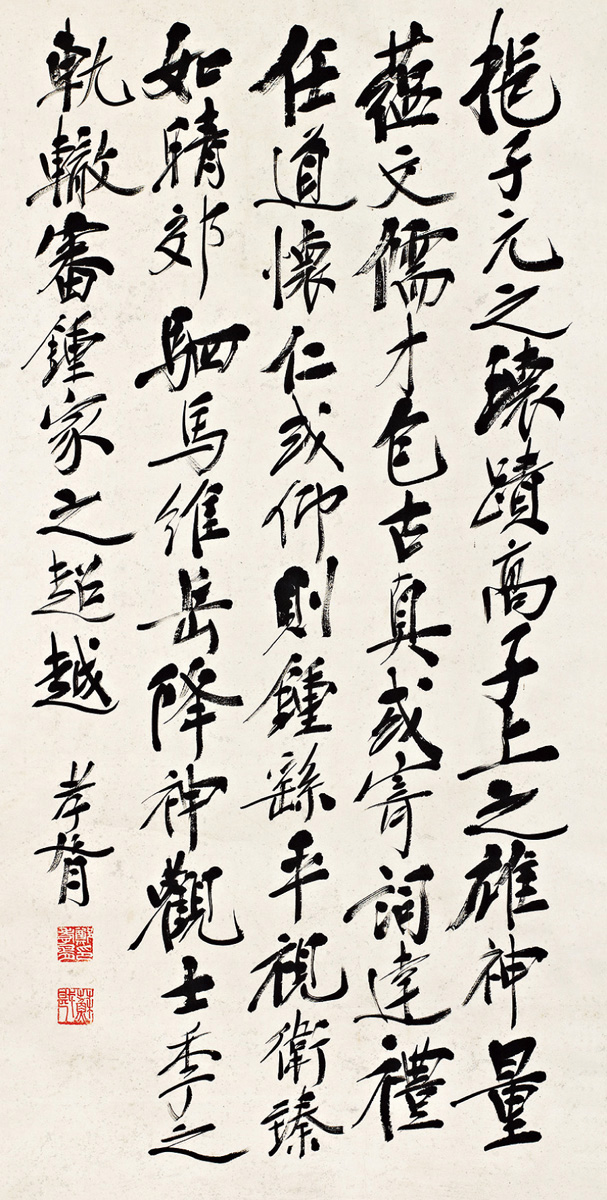 挹子元之瓌蹟高子上之雄神量
蘊文儒才包古真或寄詞達禮
任道懷仁或仰則鍾繇平視衛臻
如晴郊駟馬維岳降神觀士季之
軌轍審鍾家之超越 孝胥